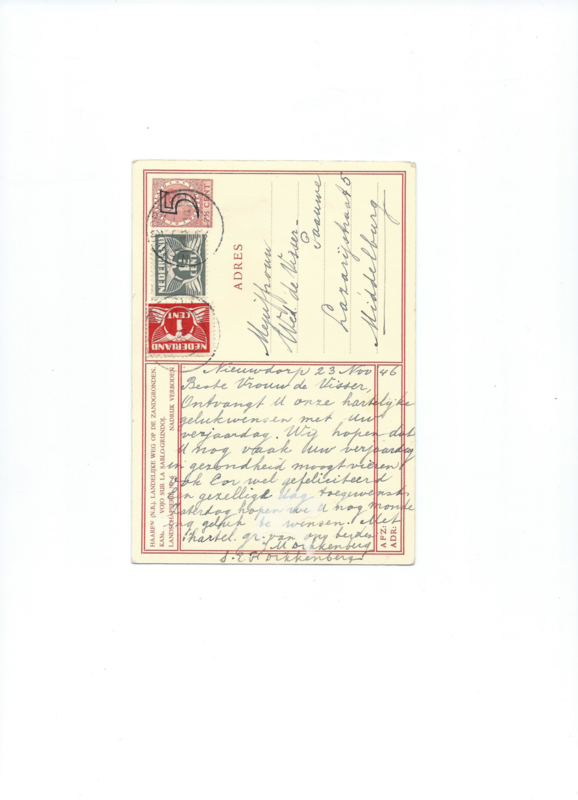 5
7½ CENT
NEDERLAND
CENT
1
CENT
NEDERLAND
ADRES
Mejuffrouw
Wed. de Visser-
Paauwe
Lazarijstraat 5
Middelburg
HAAREN (N.B.). LANDELIJKE WEG OP DE ZANDGRONDEN.
KAN. VOJO SUR LA SABLO-GRUNDOJ.
NADRUK VERBODEN
Nieuwdorp 23 Nov 46
Beste Vrouw de Visser,
Ontvangt U onze hartelijke
gelukwensen met Uw
verjaardag. Wij hopen dat
U nog vaak Uw verjaardag
in gezondheid moogt vieren.
ook Cor wel gefeliciteerd
en gezellige dag toegewenst.
Zaterdag hopen we U nog monde
ling geluk te wensen. Met
hartel. gr. van ons beiden
AFZ:
ADR: